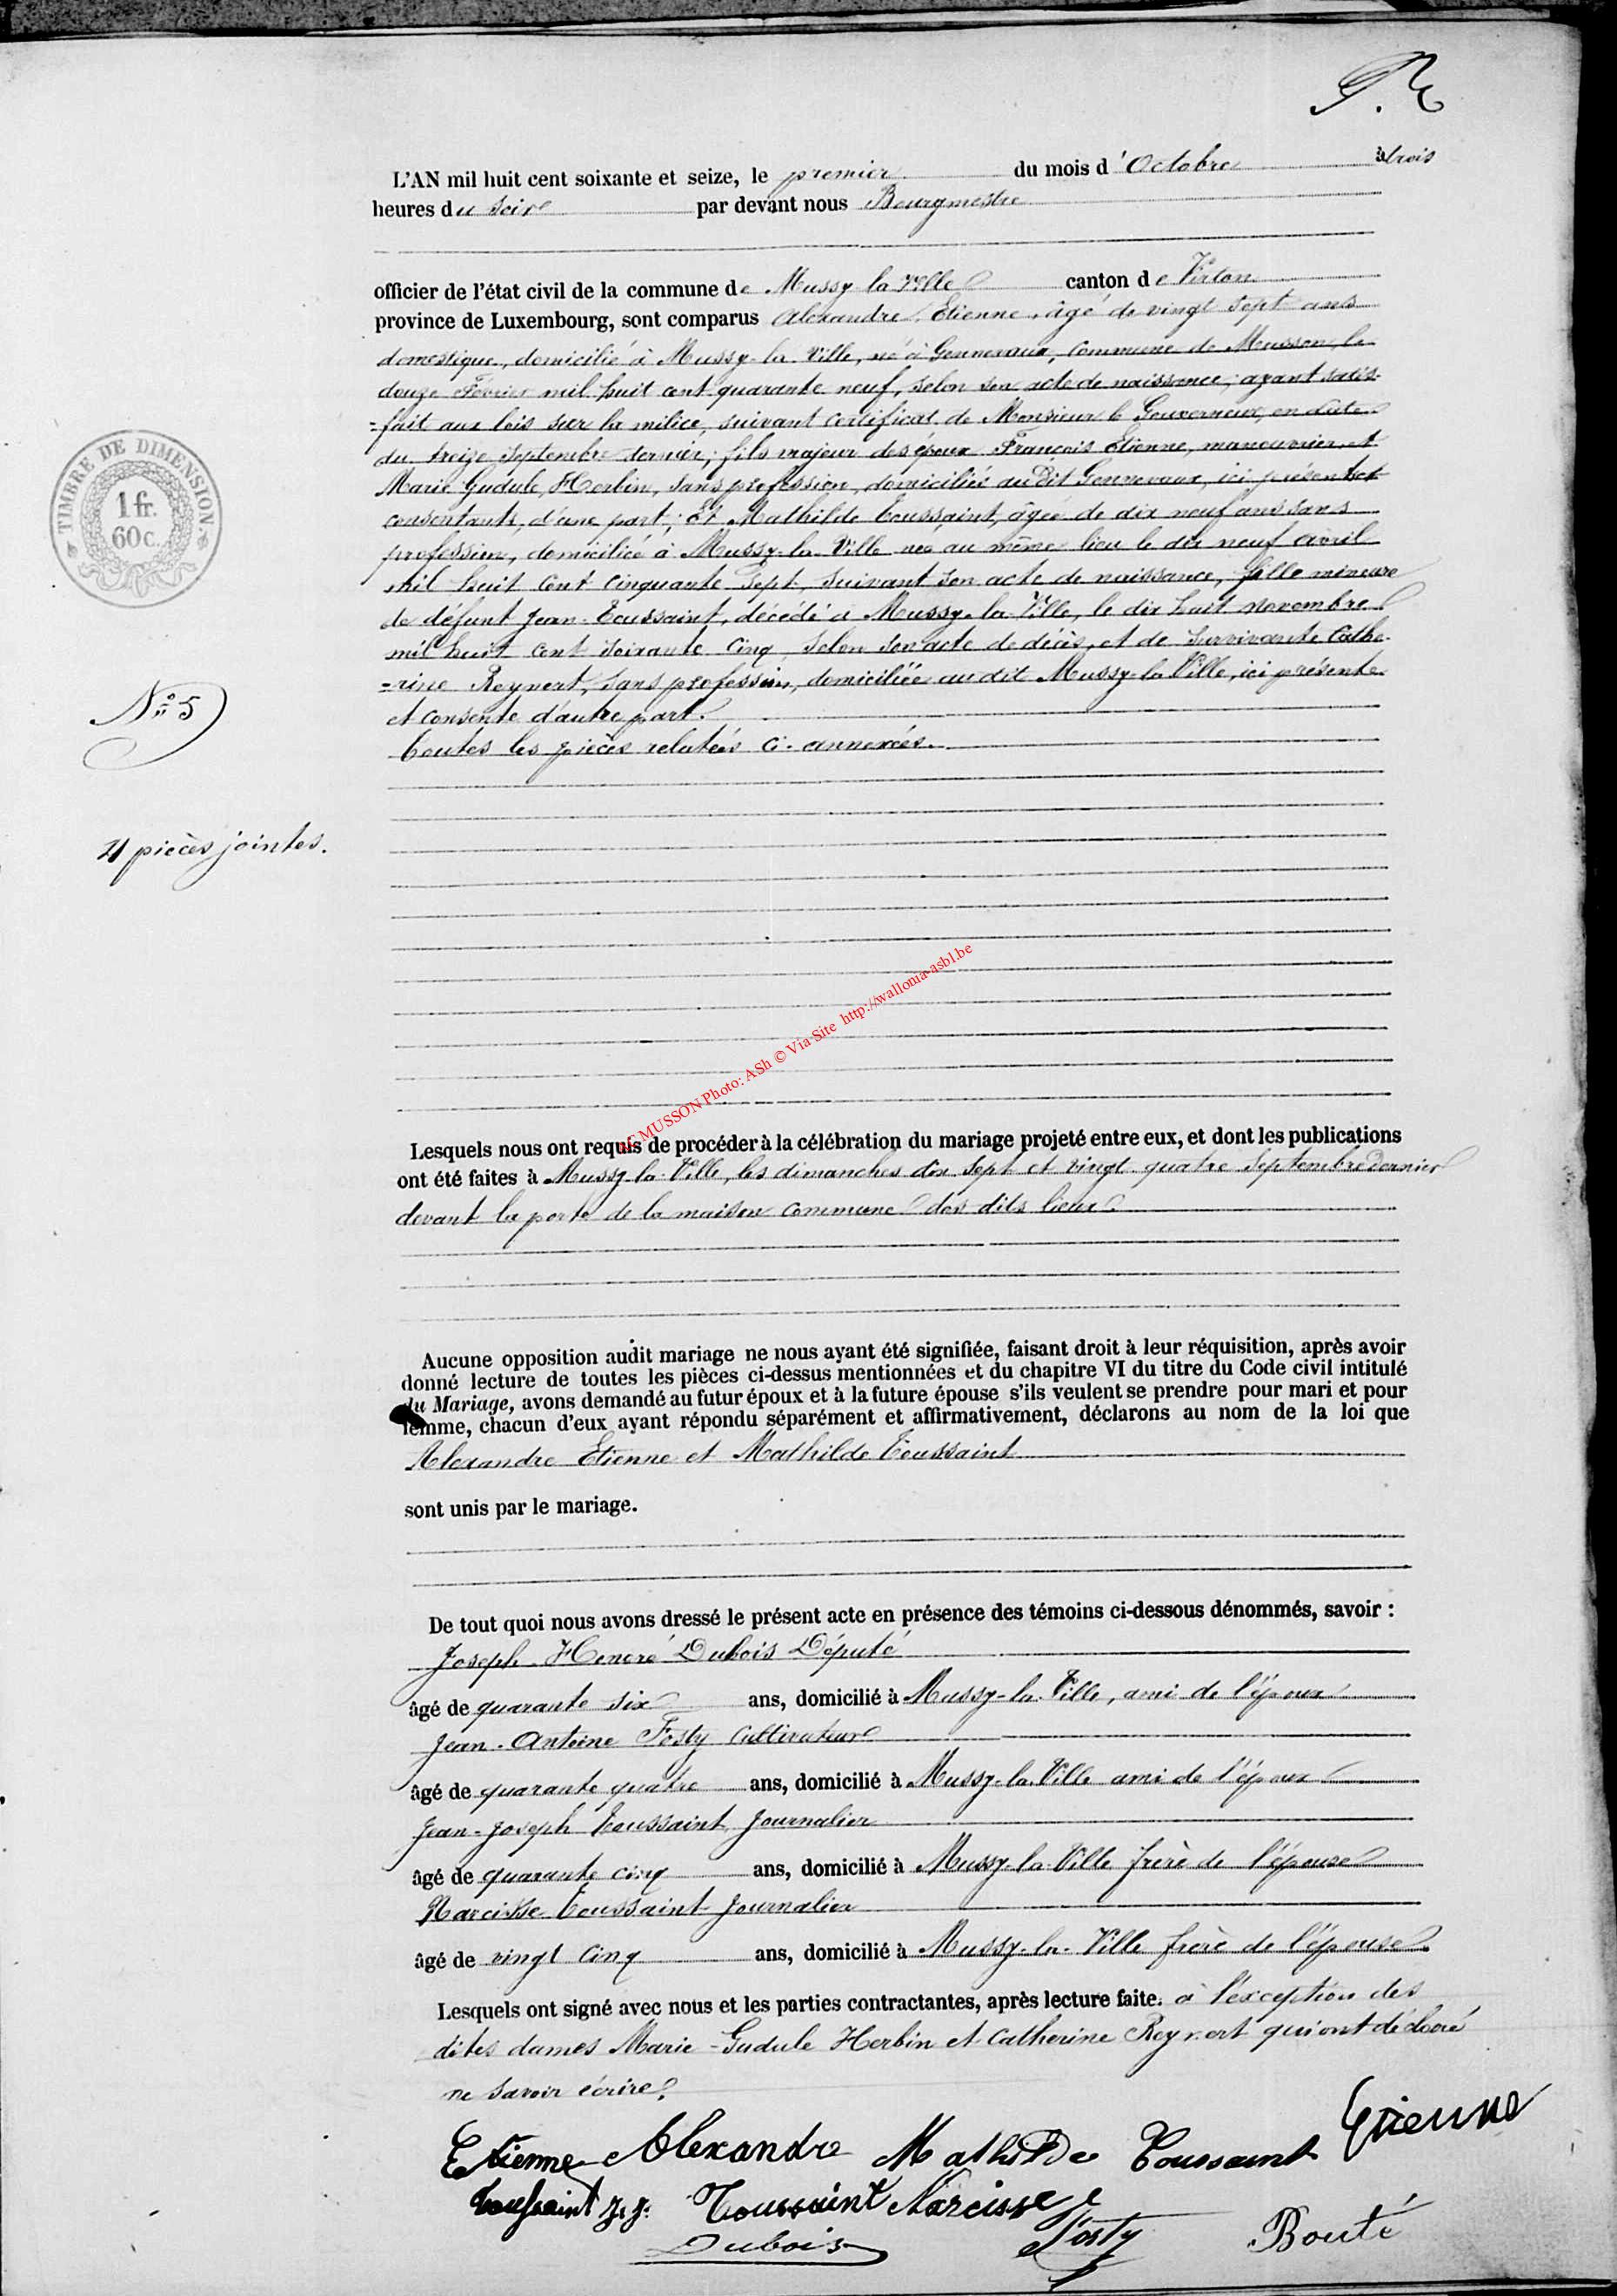 L'AN mil huit cent soixante et seize, le premier du mois d'Octobre à trois
heures du soir par devant nous Bourgmestre
officier de l'état civil de la commune de Mussy-la-Ville canton de Virton
province de Luxembourg, sont comparus Alexandre Etienne, âgé de vingt sept ans
domestique, domicilié à Mussy-la-Ville, né à Gennevaux, commune de Musson, le
douze Février mil huit cent quarante neuf, selon son acte de naissance; ayant satis-
=fait aux lois sur la milice, suivant certificat de Monsieur le Gouverneur, en date
du treize Septembre dernier; fils majeur des époux François Etienne, manouvrier et
Marie Gudule Herbin, sans profession, domiciliés audit Gennevaux, ici présents et
consentants, d'une part; Et Mathilde Toussaint, âgée de dix neuf ans sans
profession, domiciliée à Mussy-la-Ville née au même lieu le dix neuf avril
mil huit cent cinquante sept, suivant son acte de naissance, fille mineure
de défunt Jean Toussaint, décédé à Mussy-la-Ville, le dix huit novembre
mil huit cent soixante cinq, selon son acte de décès, et de survivante Cathe-
=rine Reynert, sans profession, domiciliée au dit Mussy-la-Ville, ici présente
et consente d'autre part.
Toutes les pièces relatées ci-annexées.
TIMBRE DE DIMENSION
1 fr.
60 c.
N° 5
4 pièces jointes.
MUSSON Photo: ASh © Via Site http://wallonia-asbl.be
Lesquels nous ont requis de procéder à la célébration du mariage projeté entre eux, et dont les publications
ont été faites à Mussy-la-Ville, les dimanches dix sept et vingt quatre Septembre dernier
devant la porte de la maison commune des dits lieux
Aucune opposition audit mariage ne nous ayant été signifiée, faisant droit à leur réquisition, après avoir
donné lecture de toutes les pièces ci-dessus mentionnées et du chapitre VI du titre du Code civil intitulé
du Mariage, avons demandé au futur époux et à la future épouse s'ils veulent se prendre pour mari et pour
femme, chacun d'eux ayant répondu séparément et affirmativement, déclarons au nom de la loi que
Alexandre Etienne et Mathilde Toussaint
sont unis par le mariage.
De tout quoi nous avons dressé le présent acte en présence des témoins ci-dessous dénommés, savoir :
Joseph Honoré Dubois Député
âgé de quarante six ans, domicilié à Mussy-la-Ville, ami de l'époux
Jean-Antoine Fosty Cultivateur
âgé de quarante quatre ans, domicilié à Mussy-la-Ville ami de l'époux
Jean-Joseph Toussaint Journalier
âgé de quarante cinq ans, domicilié à Mussy-la-Ville frère de l'épouse
Narcisse Toussaint Journalier
âgé de vingt cinq ans, domicilié à Mussy-la-Ville frère de l'épouse
Lesquels ont signé avec nous et les parties contractantes, après lecture faite. à l'exception des
dites dames Marie-Gudule Herbin et Catherine Reynert qui ont déclaré
ne savoir écrire.
Etienne Alexandre Mathilde Toussaint Etienne
Toussaint J. J. Toussaint Narcisse
Dubois Fosty Bouté